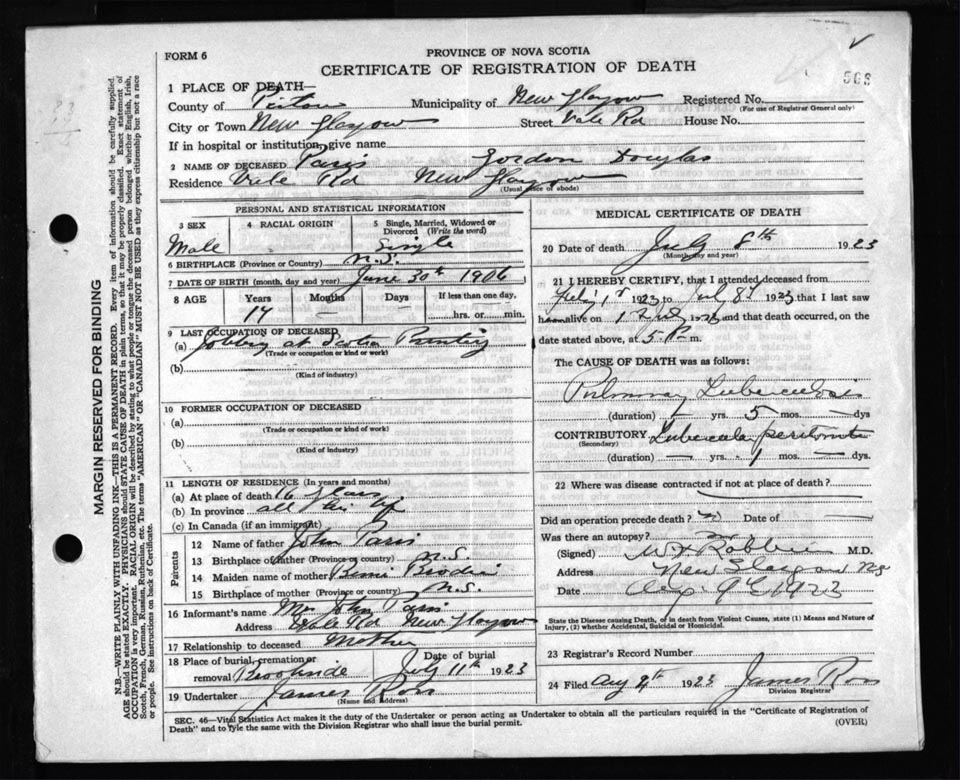 FORM 6
PROVINCE OF NOVA SCOTIA
CERTIFICATE OF REGISTRATION OF DEATH
568
1 PLACE OF DEATH—
County of Pictou Municipality of New Glasgow Registered No.
(For use of Registrar General only)
City or Town New Glasgow Street Vale Rd House No.
If in hospital or institution, give name
2 NAME OF DECEASED Paris Gordon Douglas
Residence Vale Rd New Glasgow
(Usual place of abode)
PERSONAL AND STATISTICAL INFORMATION
3 SEX
Male
4 RACIAL ORIGIN
5 Single, Married, Widowed or Divorced (Write the word)
Single
6 BIRTHPLACE (Province or Country) N.S.
7 DATE OF BIRTH (month, day and year) June 30th 1906
8 AGE Years Months Days If less than one day,
17 — — hrs. or min.
9 LAST OCCUPATION OF DECEASED
(a) Jobbing at Scotia Printing
(Trade or occupation or kind or work)
(b)
(Kind of industry)
10 FORMER OCCUPATION OF DECEASED
(a)
(Trade or occupation or kind or work)
(b)
(Kind of industry)
11 LENGTH OF RESIDENCE (In years and months)
(a) At place of death 16 years
(b) In province all his life
(c) In Canada (if an immigrant)
Parents
12 Name of father John Paris
13 Birthplace of father (Province or country) N.S.
14 Maiden name of mother
15 Birthplace of mother (Province or country) N.S.
16 Informant's name Mrs John Paris
Address Vale Rd New Glasgow
17 Relationship to deceased Mother
18 Place of burial, cremation or removal Brookside
Date of burial July 11th 1923
19 Undertaker James Ross
(Name and Address)
MEDICAL CERTIFICATE OF DEATH
20 Date of death July 8th 1923
(Month, day and year)
21 I HEREBY CERTIFY, that I attended deceased from
July 1st 1923 to July 8th 1923 that I last saw
h alive on 1 July 1923 and that death occurred, on
date stated above, at 5 P. m.
The CAUSE OF DEATH was as follows:
Pulmonary Tuberculosis
(duration) — yrs. 5 mos. — dys
CONTRIBUTORY Tubercular peritonitis
(Secondary)
(duration) — yrs. 1 mos. — dys.
22 Where was disease contracted if not at place of death?
Did an operation precede death? Date of —
Was there an autopsy?
(Signed) M.D.
Address New Glasgow N.S.
Date 1923
State the Disease causing Death, or in death from Violent Causes, state (1) Means and Nature of
Injury, (2) whether Accidental, Suicidal or Homicidal.
23 Registrar's Record Number
24 Filed Aug 1923 James Ross
Division Registrar
SEC. 46—Vital Statistics Act makes it the duty of the Undertaker or person acting as Undertaker to obtain all the particulars required in the "Certificate of Registration of
Death" and to fyle the same with the Division Registrar who shall issue the burial permit. (OVER)
MARGIN RESERVED FOR BINDING
N.B.—WRITE PLAINLY WITH UNFADING INK—THIS IS A PERMANENT RECORD. Every item of information should be carefully supplied.
AGE should be stated EXACTLY. PHYSICIANS should STATE CAUSE OF DEATH in plain terms, so that it may be properly classified. Exact statement of
OCCUPATION is very important. RACIAL ORIGIN will be described by stating to what people or tongue the deceased person belonged whether English, Irish,
Scotch, French, German, Russian, Ruthenian, etc. The terms "AMERICAN" OR "CANADIAN" MUST NOT BE USED as they express citizenship but not a race
or people. See instructions on back of Certificate.